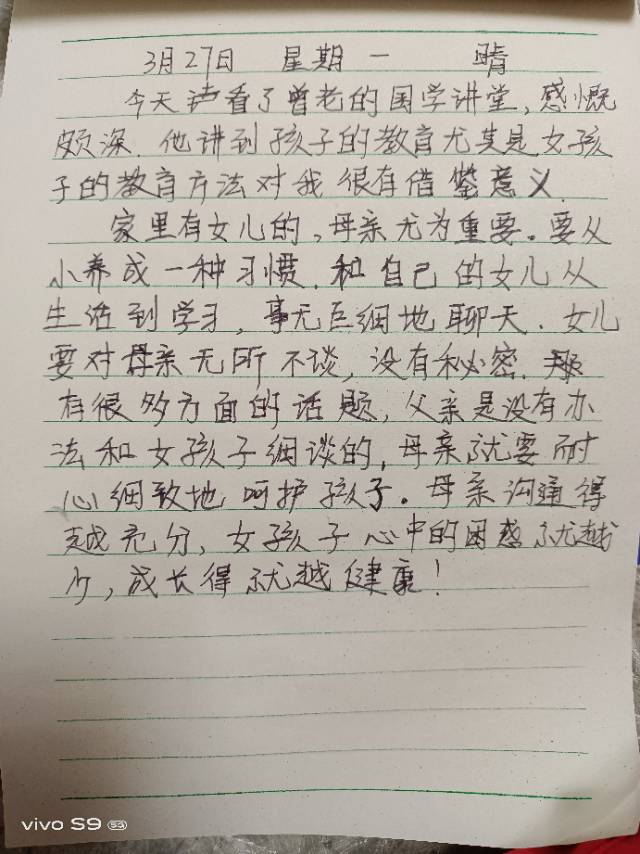 3月27日 星期一 晴
今天声看了曾老的国学讲堂,感慨
颇深.他讲到孩子的教育尤其是女孩
子的教育方法对我很有借鉴意义.
家里有女儿的,母亲尤为重要。要从
小养成一种习惯.和自己的女儿从
生活到学习,事无巨细地聊天.女儿
要对母亲无所不谈,没有秘密.
有很多方面的话题,父亲是没有办
法和女孩子细谈的,母亲就要耐
心细致地呵护孩子。母亲沟通得
越充分,女孩子心中的困惑就越
少,成长得就越健康!
vivo S9